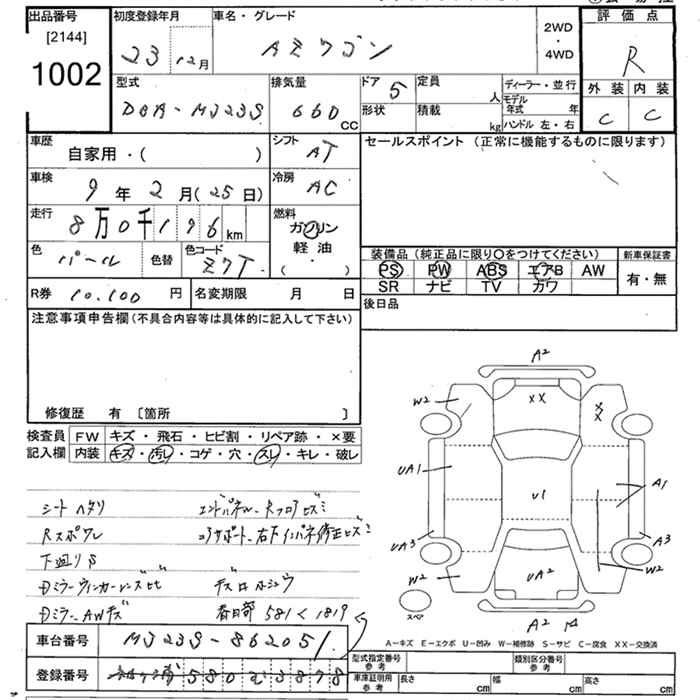 出品番号 初度登録年月 車名・グレード 2WD・4WD 評価点
[2144]
1002
23 12月 AZワゴン R
型式 排気量 ドア 5 定員 人 ディーラー・並行 外装 内装
DBA-MJ23S 660 CC 形状 積載 kg モデル年式 年 C C
ハンドル 左・右
車歴 自家用・( ) シフト AT セールスポイント (正常に機能するものに限ります)
車検 9年2月(25日) 冷房 AC
走行 8万0千196km 燃料 ガソリン
軽油
( ・ )
色 パール 色替 色コード ZVT 装備品 (純正品に限り○をつけてください) 新車保証書
PS PW ABS エアB AW 有・無
SR ナビ TV カワ
R券 10.100 円 名変期限 月 日 後日品
注意事項申告欄(不具合内容等は具体的に記入して下さい)
修復歴 有 [箇所 ]
検査員 FW キズ・飛石・ヒビ割・リペア跡・×要
記入欄 内装 キズ・汚レ・コゲ・穴・スレ・キレ・破レ
シート ヘタリ
下廻りS
A2
W2 XX XX
UA1 U1 A1
UA3 A3
W2 UA2 W2
スペア A2
A-キズ E-エクボ U-凹み W-補修跡 S-サビ C-腐食 XX-交換済
車台番号 MJ23S-862051
登録番号 580 3878
型式指定番号 参考 類別区分番号 参考
車庫証明用 参考 長さ cm 幅 cm 高さ cm